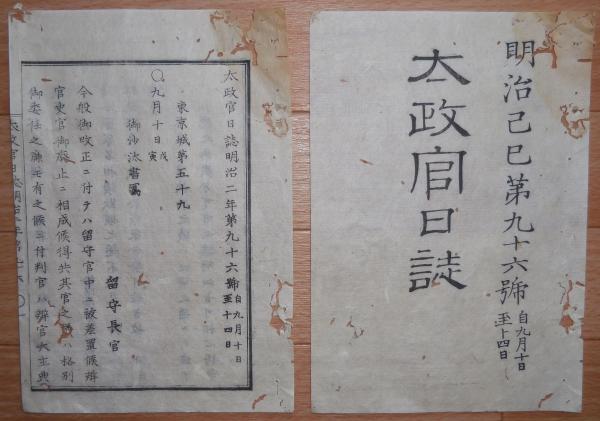 明治己巳第九十六號 自九月十日至十四日
太政官日誌
太政官日誌明治二年第九十六號 自九月十日至十四日
東京城第五十九
〇九月十日 戊寅
御沙汰書寫
留守長官
今般御改正ニ付テハ留守官中ニ被差置候辨
官史官御廢止ニ相成候得共其官之務ハ格別
御委任之廉モ有之候ニ付判官ハ辨官大主典